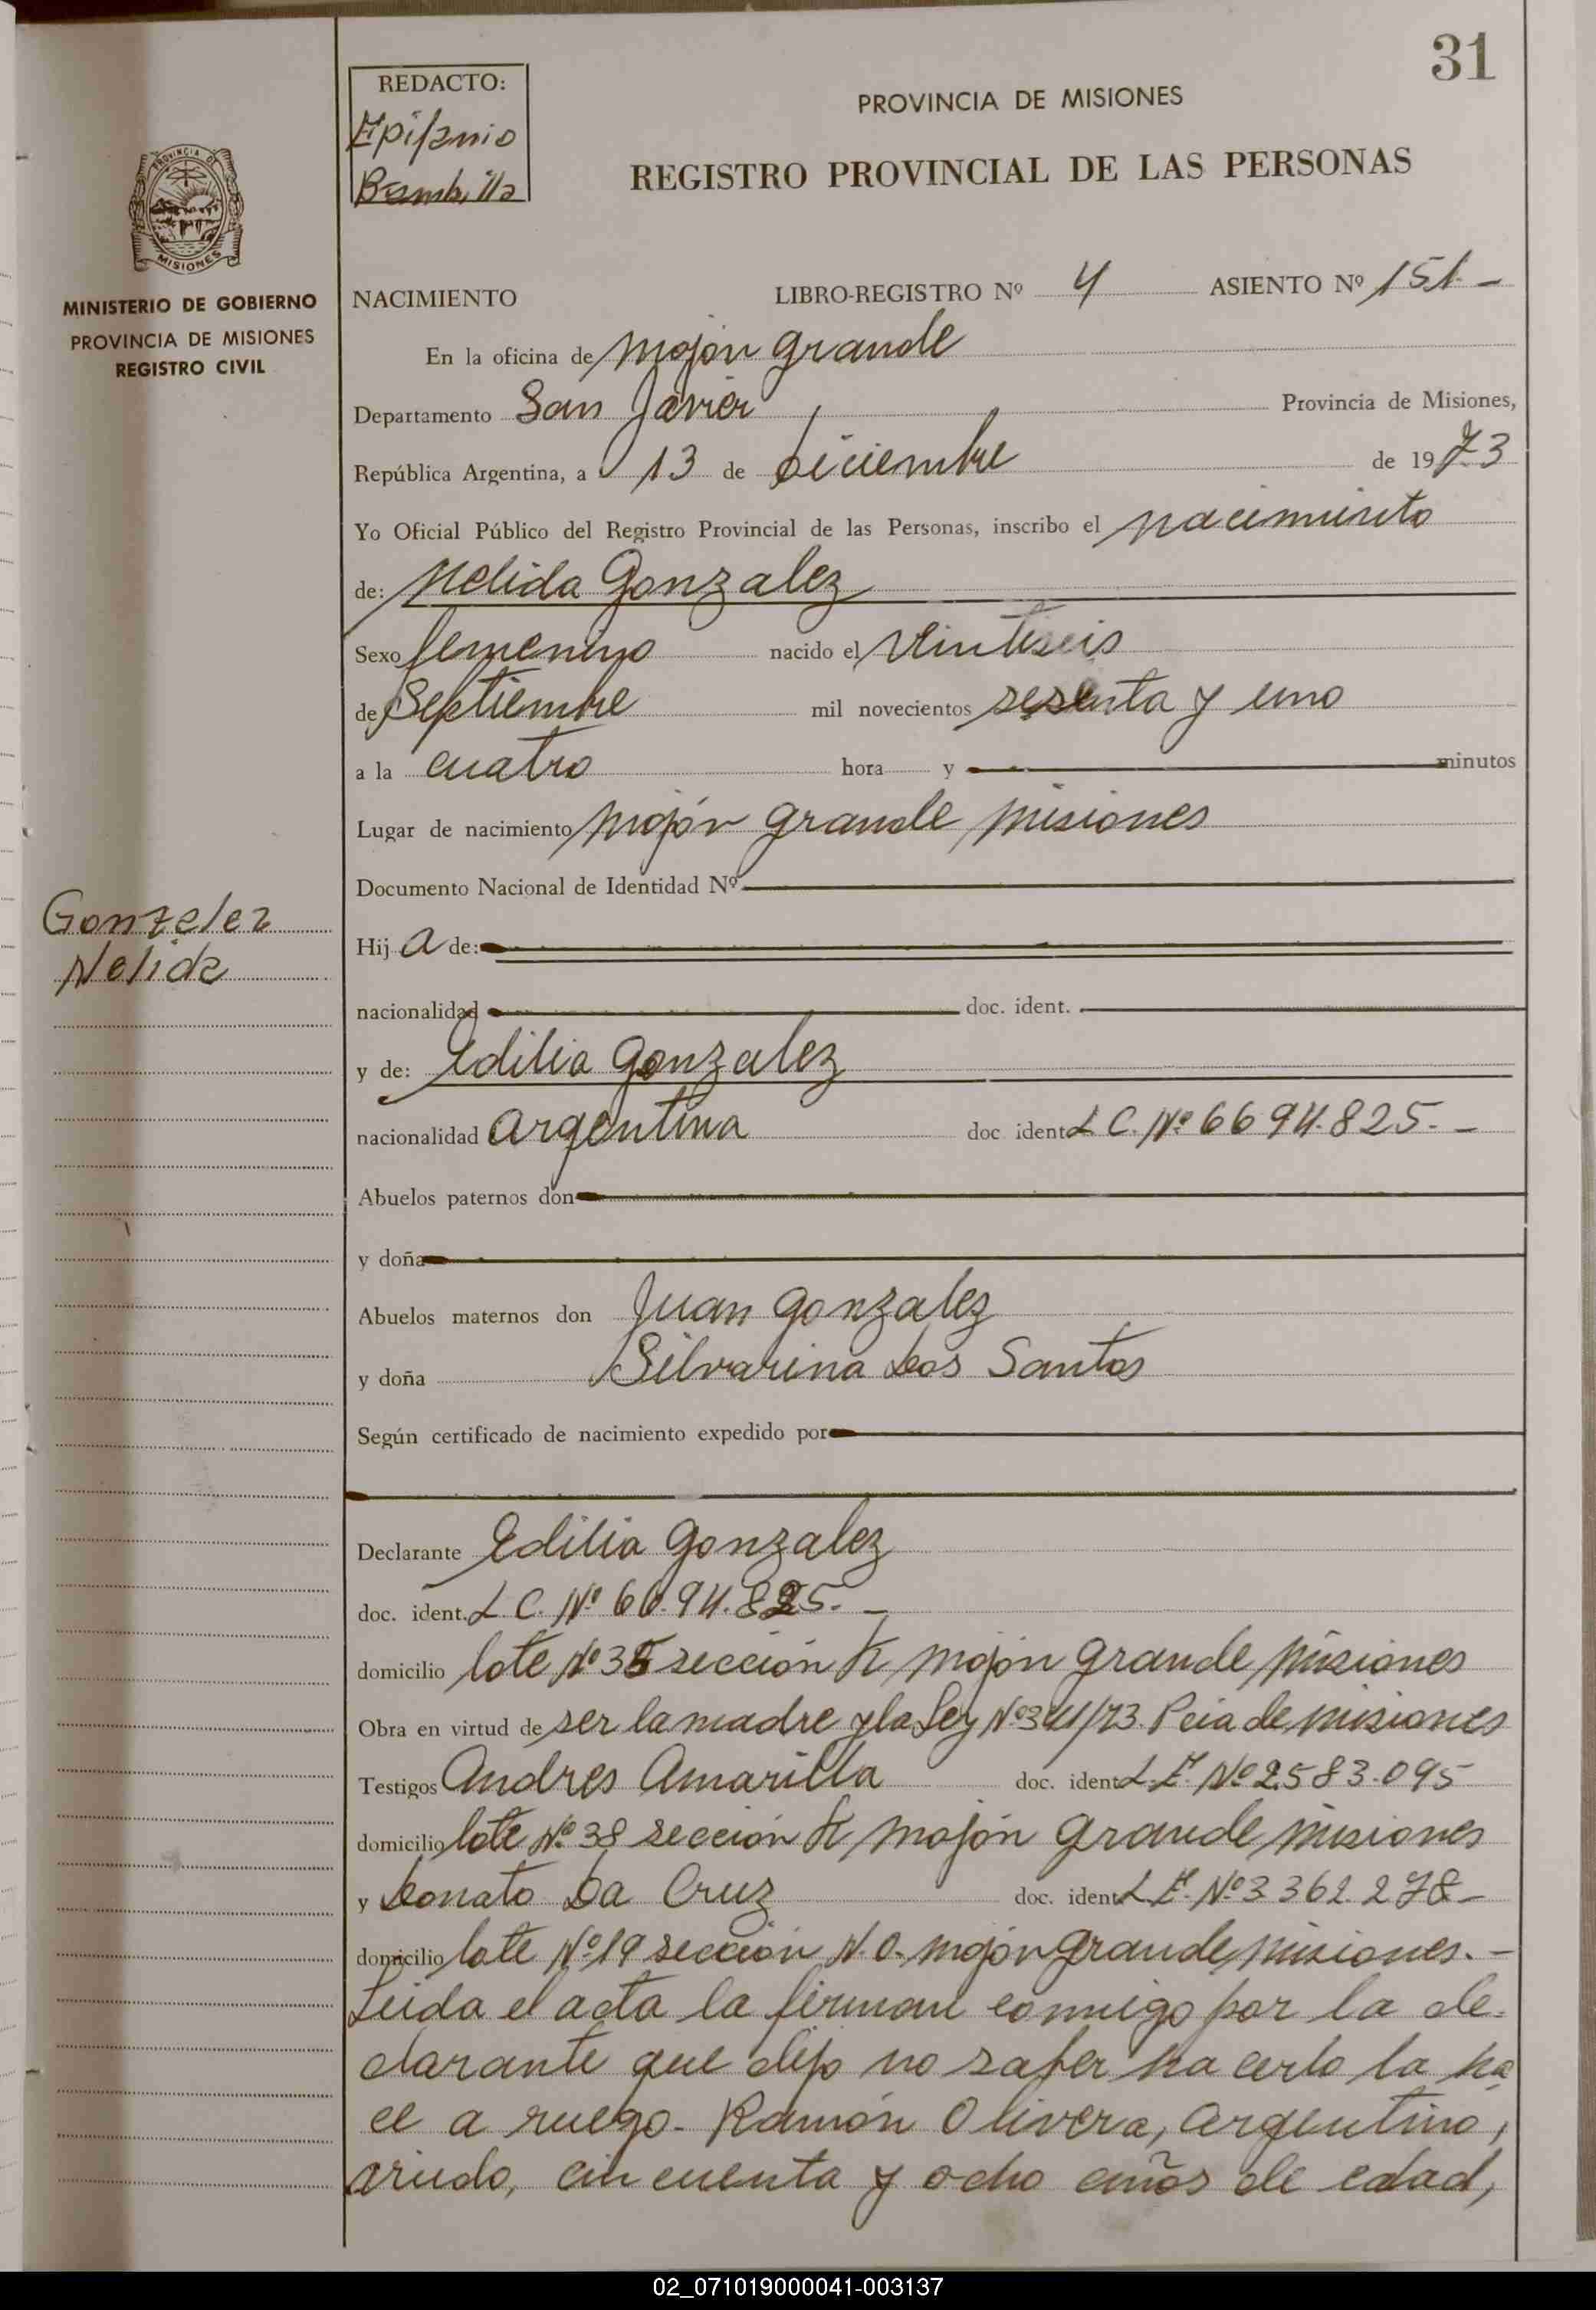 31
REDACTO:
Epifanio
Bambilla
PROVINCIA DE MISIONES
REGISTRO PROVINCIAL DE LAS PERSONAS
PROVINCIA DE
MISIONES
MINISTERIO DE GOBIERNO
PROVINCIA DE MISIONES
REGISTRO CIVIL
NACIMIENTO LIBRO-REGISTRO Nº 4 ASIENTO Nº 151.-
En la oficina de Mojón Grande
Departamento San Javier, Provincia de Misiones,
República Argentina, a 13 de Diciembre de 1973
Yo Oficial Público del Registro Provincial de las Personas, inscribo el nacimiento
de: Nelida Gonzalez
Sexo femenino nacido el veintiseis
de Septiembre mil novecientos sesenta y uno
a la cuatro hora y minutos
Lugar de nacimiento Mojón Grande Misiones
Documento Nacional de Identidad Nº
Gonzalez
Nelida
Hij a de:
nacionalidad doc. ident.
y de: Edilia Gonzalez
nacionalidad argentina doc ident L C. Nº 6694.825.-
Abuelos paternos don
y doña
Abuelos maternos don Juan Gonzalez
y doña Silvarina Dos Santos
Según certificado de nacimiento expedido por
Declarante Edilia Gonzalez
doc. ident. L C. Nº 66.94.825.-
domicilio lote Nº 35 sección K Mojón Grande Misiones
Obra en virtud de ser la madre y la Ley Nº 341/73. Pcia de Misiones
Testigos Andres Amarilla doc. ident L.E. Nº 2.583.095
domicilio lote Nº 38 sección K Mojón Grande Misiones
y Donato Da Cruz doc. ident L E. Nº 3.362.278-
domicilio lote Nº 19 sección N.O. Mojón Grande, Misiones.-
Leida el acta la firman conmigo por la de-
clarante que dijo no saber hacerlo la ha
ce a ruego- Ramón Olivera, argentino,
viudo, cincuenta y ocho años de edad,
02_071019000041-003137